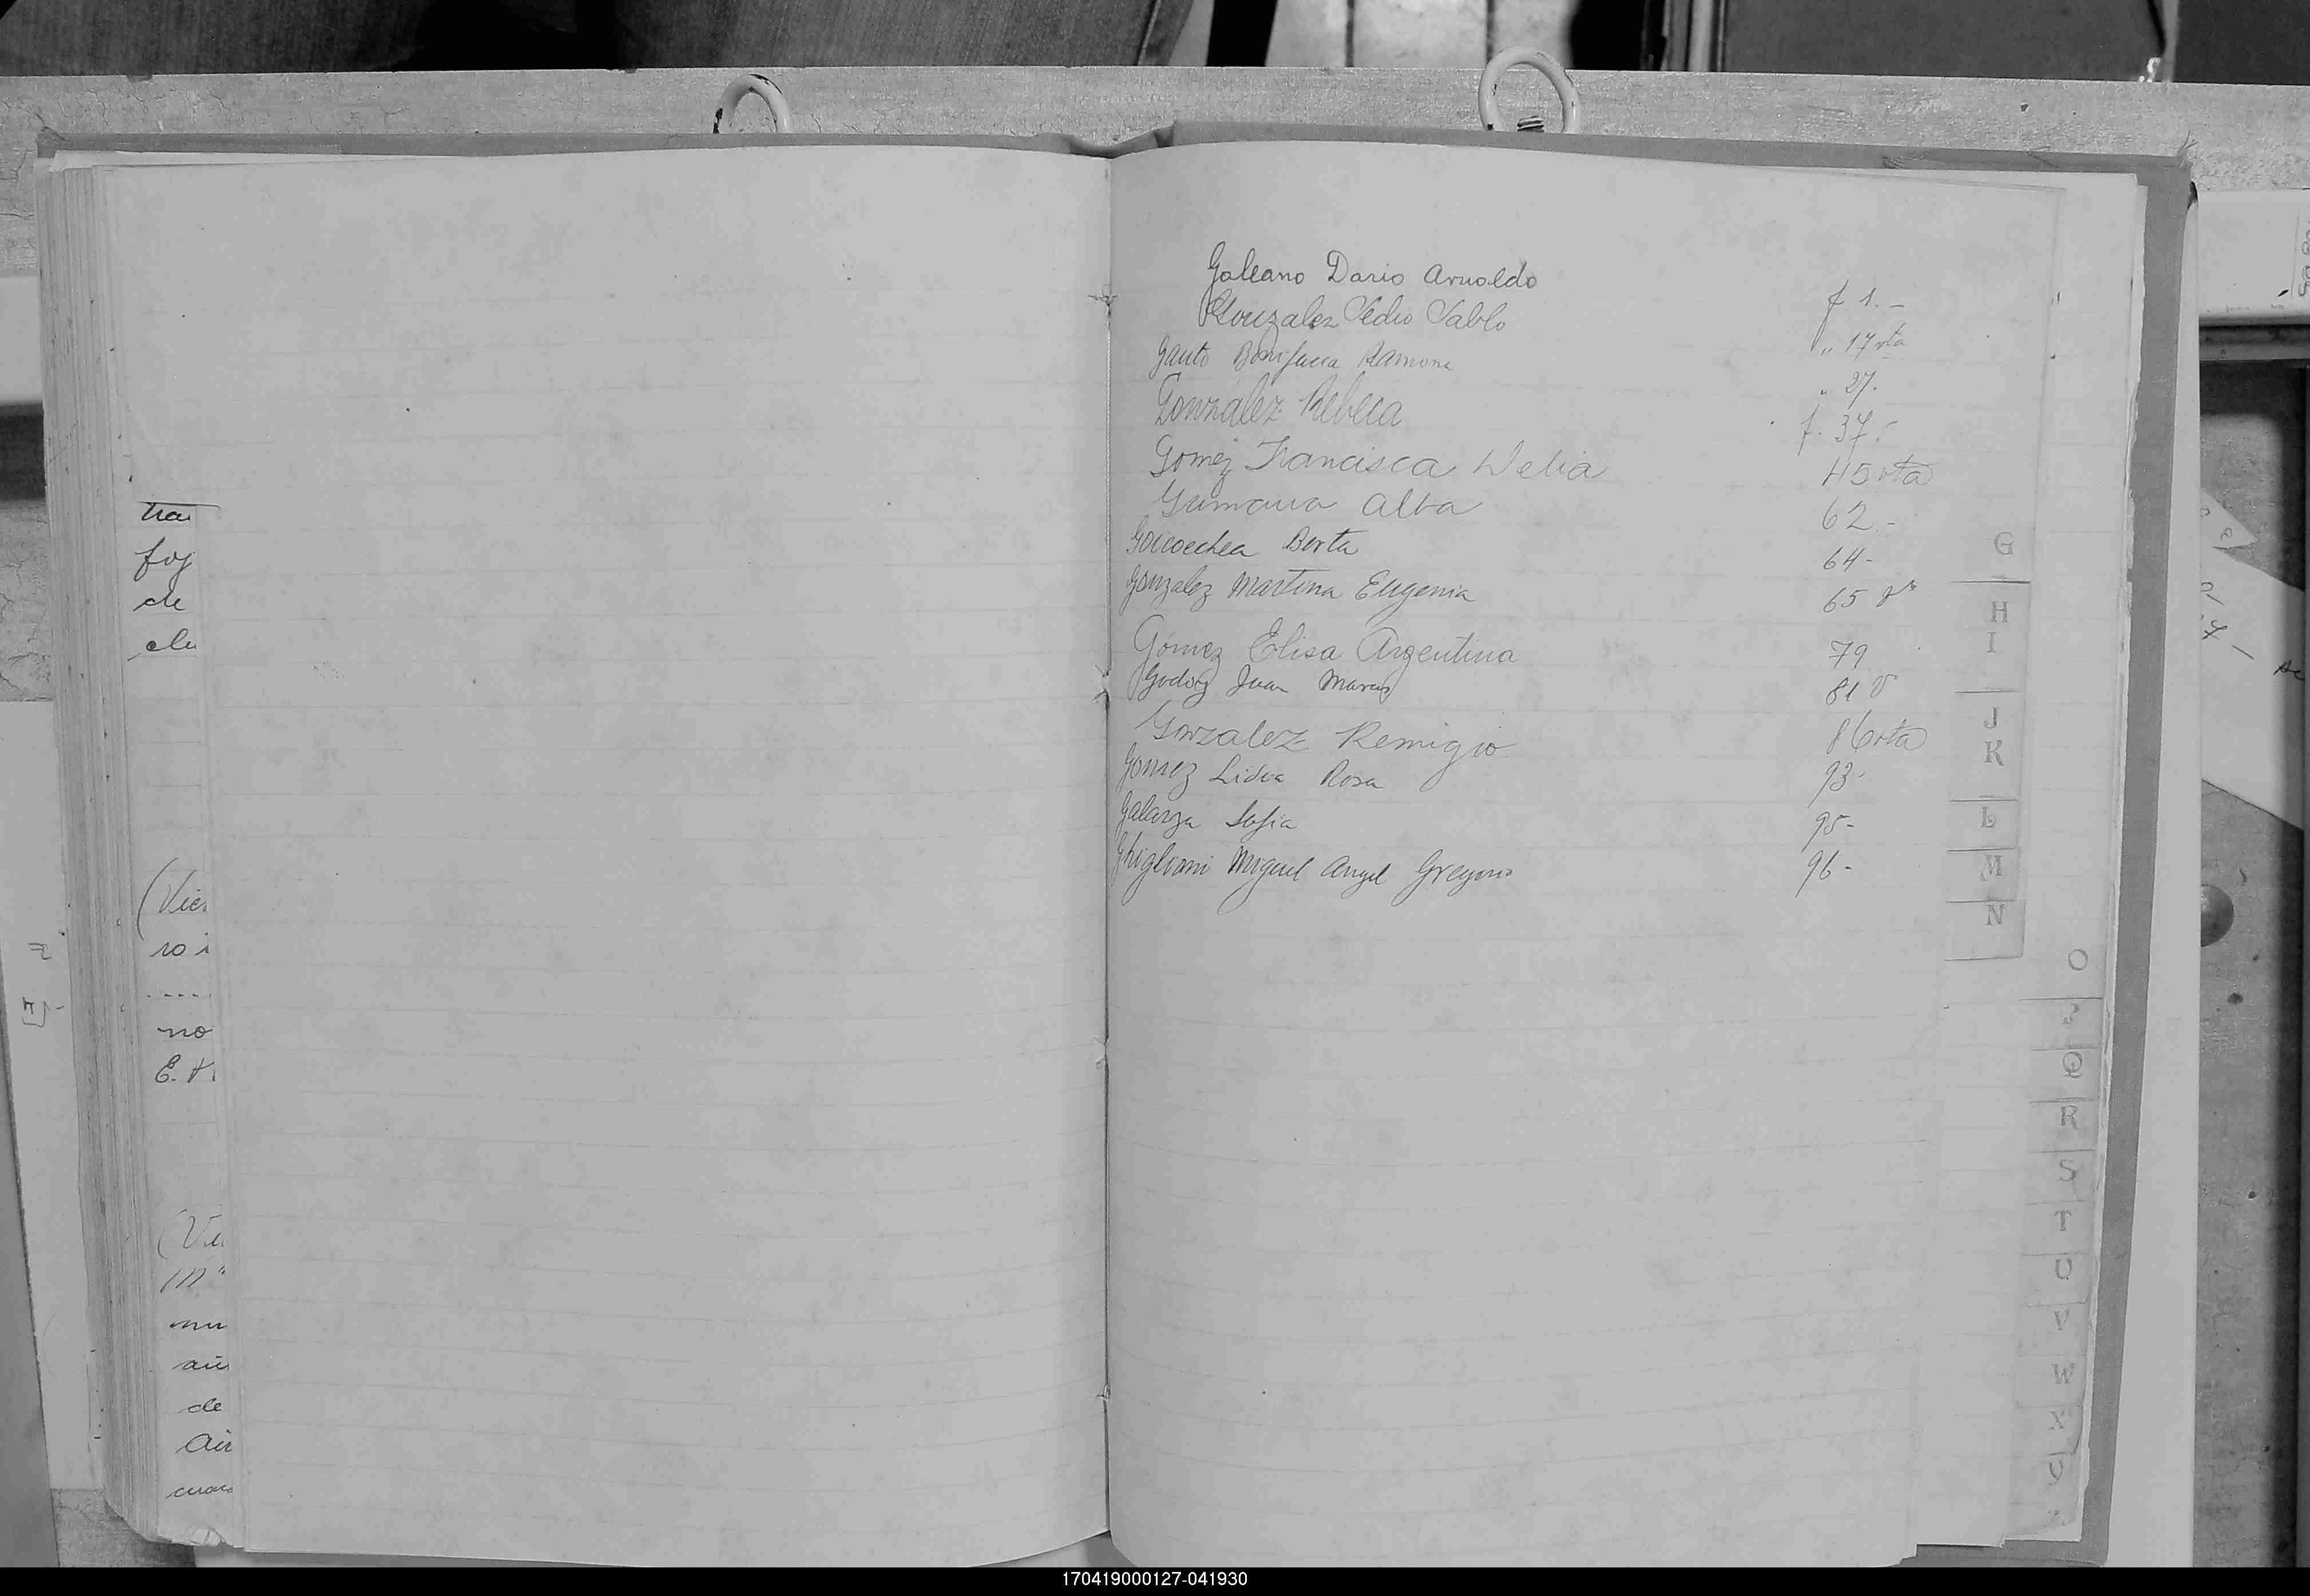 tra
foj
de
de
(Vici
ro i
no
E. V.
(Vi
mu
de
Galeano Dario Arnoldo f 1.-
Gonzalez Pedro Pablo " 17 vta
Gauto Bonifacia Ramona " 27.
Gonzalez Rebeca f. 37.-
Gomez Francisca Delia 45 vta
Gumana Alba 62.-
Goicoechea Berta 64-
Gonzalez Martina Eugenia 65 vta
Gómez Elisa Argentina 79
Godoy Juan 81 v
Gonzalez Remigio 86 vta
Gomez Lidia Rosa 93-
Galarza Sofia 95-
Ghiglioni Miguel Angel Gregorio 96-
G
H
I
J
K
L
M
N
O
Q
R
S
T
U
V
W
X
170419000127-041930